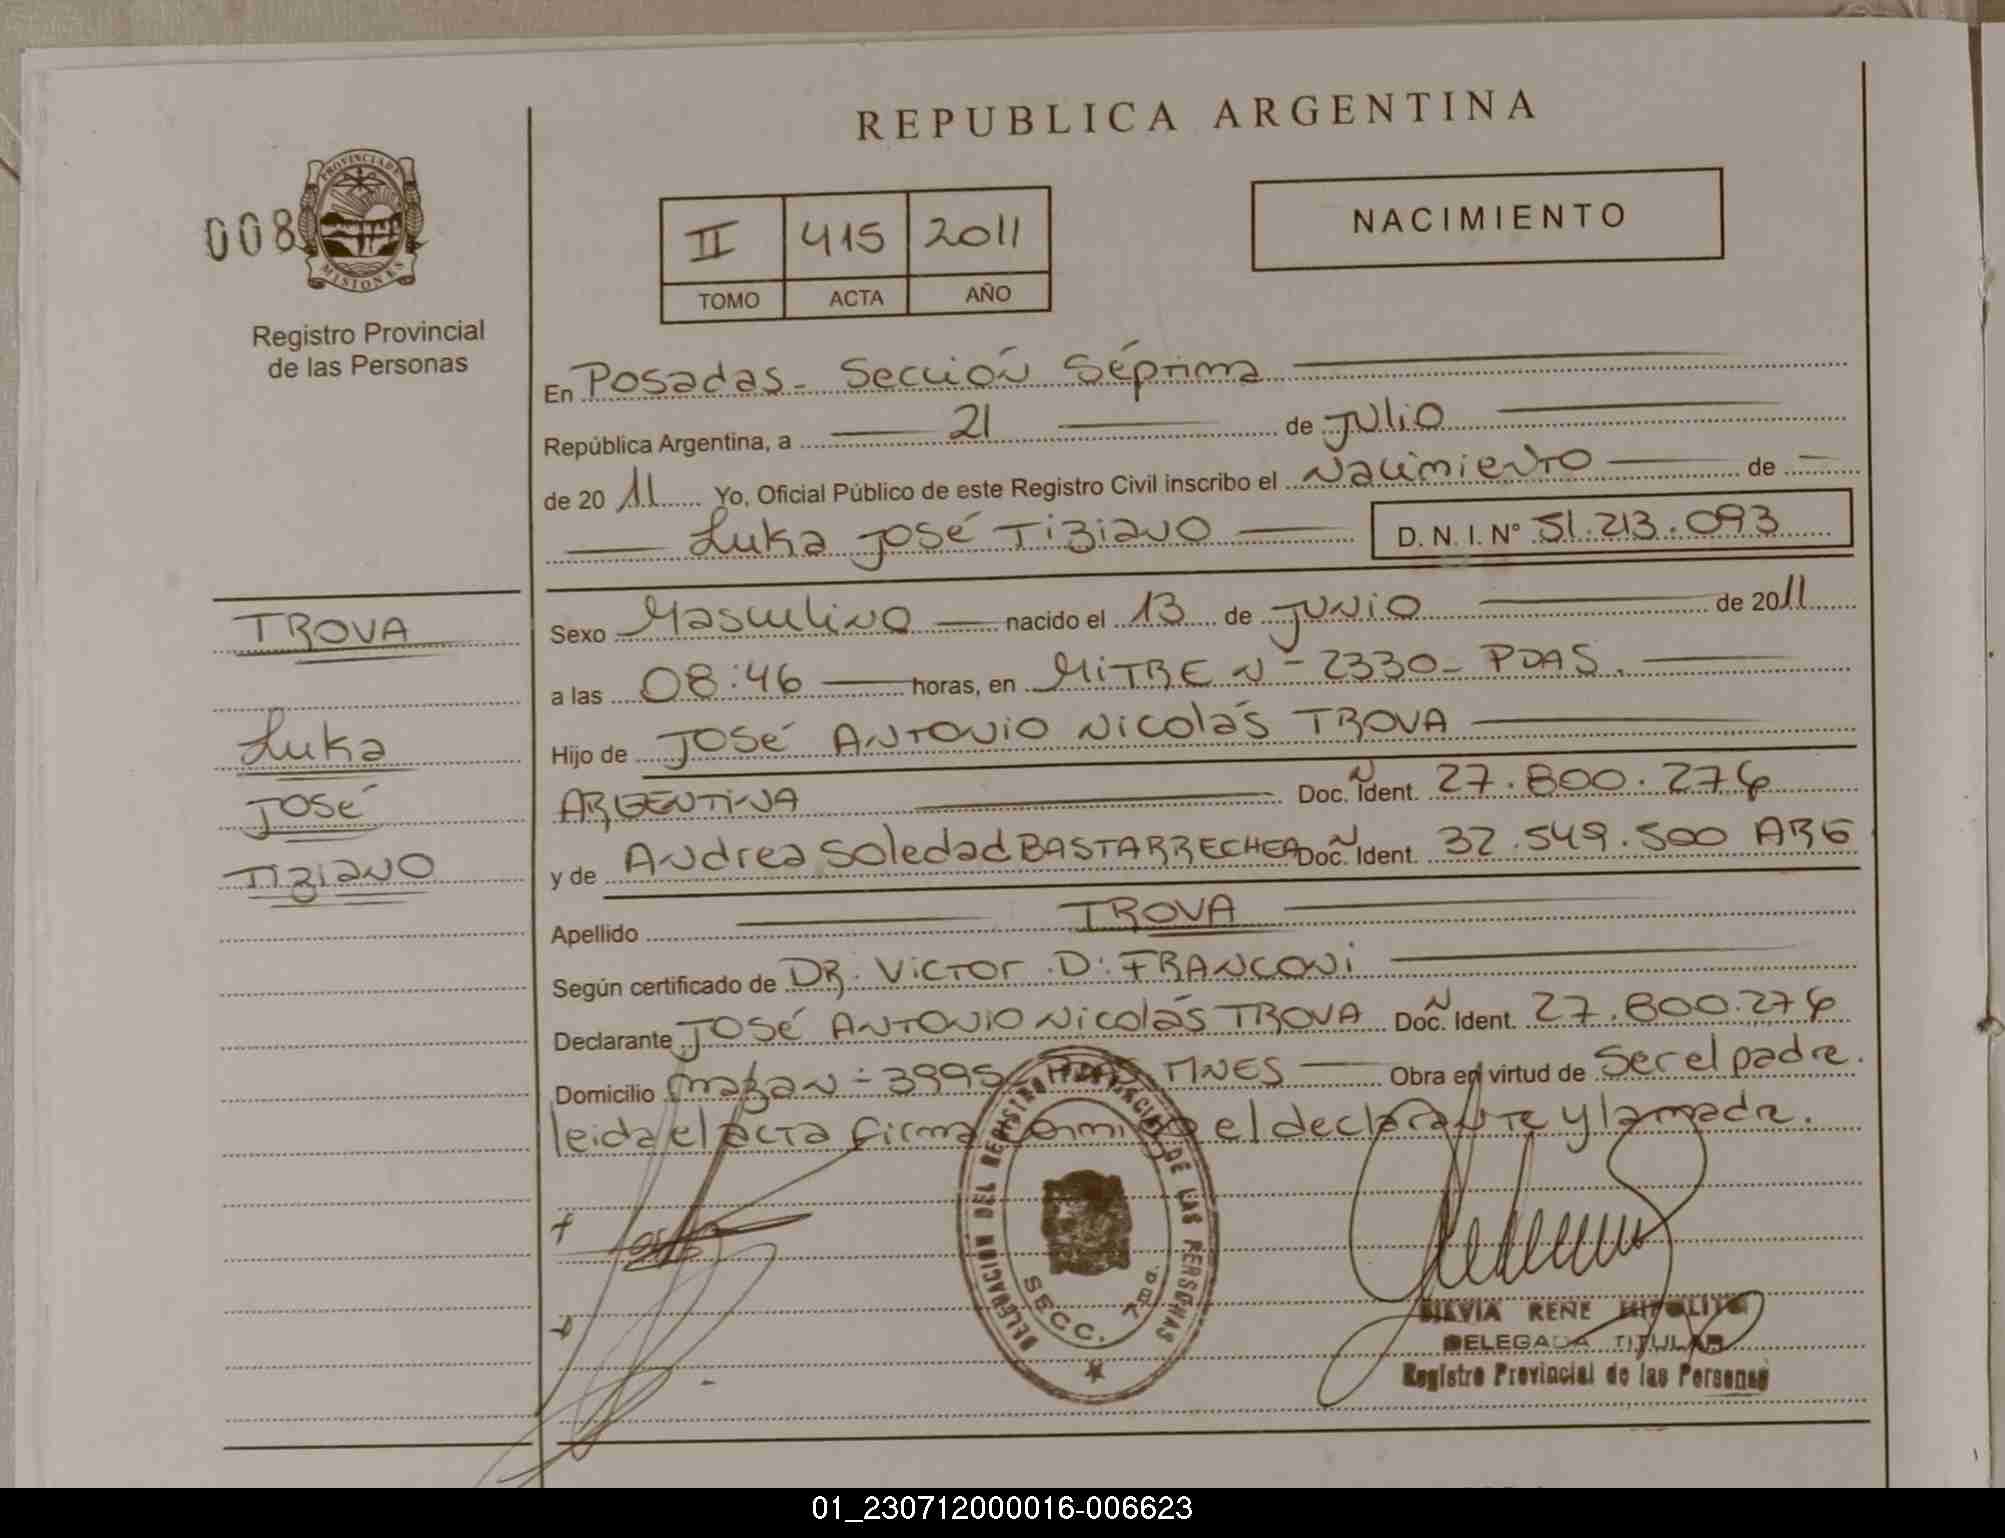 REPUBLICA ARGENTINA
008
PROVINCIA DE
MISIONES
Registro Provincial
de las Personas
II 415 2011
TOMO ACTA AÑO
NACIMIENTO
En Posadas - Sección Séptima
República Argentina, a 21 de Julio
de 2011 Yo, Oficial Público de este Registro Civil inscribo el Nacimiento de
Luka José Tiziano D. N. I. Nº 51.213.093
Sexo Masculino nacido el 13 de Junio de 2011
a las 08:46 horas, en MITRE N- 2330- PDAS.
Hijo de José Antonio Nicolás TROVA
ARGENTINA Doc. Ident. 27.800.276
y de Andrea Soledad BASTARRECHEA Doc. Ident. 32.549.500 ARG
Apellido TROVA
Según certificado de DR. Victor D. FRANCONI
Declarante José Antonio Nicolás TROVA Doc. Ident. 27.800.276
Domicilio Mazan - 3995 - PDAS MNES Obra en virtud de Ser el padre.
leida el acta firma conmigo el declarante y la madre.
TROVA
Luka
José
Tiziano
DELEGACION DEL REGISTRO PROVINCIAL DE LAS PERSONAS
SECC. 7ma.
SILVIA RENE HIPOLITO
DELEGADA TITULAR
Registro Provincial de las Personas
01_230712000016-006623